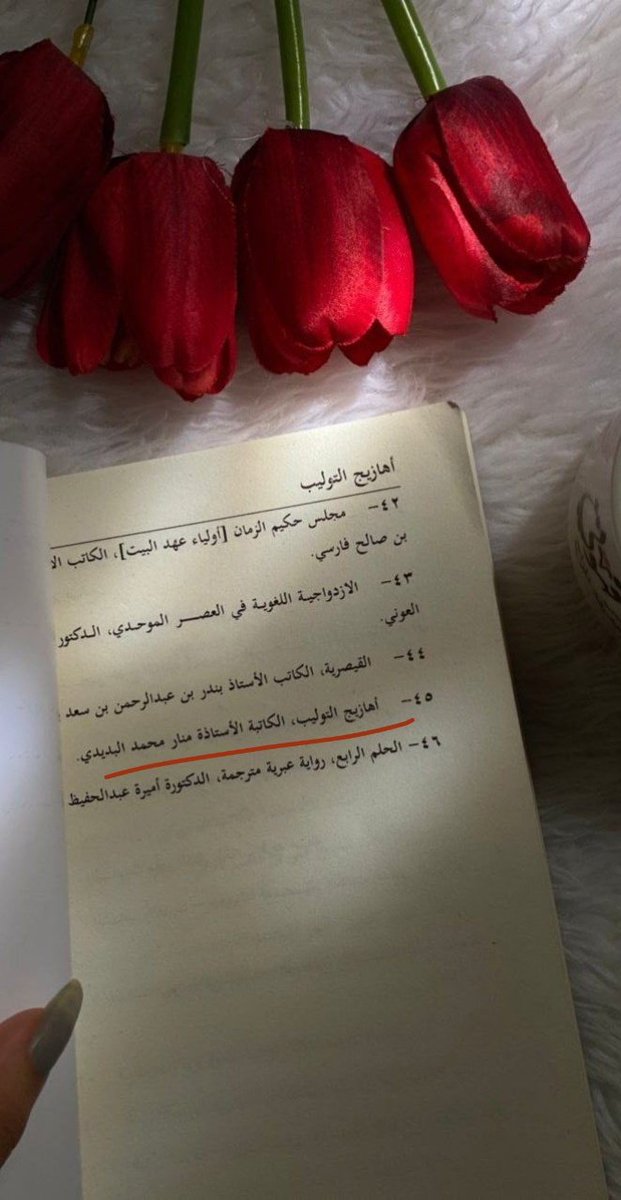 أهازيج التوليب
٤٢- مجلس حكيم الزمان [أولياء عهد البيت]، الكاتب
بن صالح فارسي.
٤٣- الازدواجية اللغوية في العصر الموحدي، الدكتور
العوني.
٤٤- القيصرية، الكاتب الأستاذ بندر بن عبدالرحمن بن سعد
٤٥- أهازيج التوليب، الكاتبة الأستاذة منار محمد البديدي.
٤٦- الحلم الرابع، رواية عبرية مترجمة، الدكتورة أميرة عبدالحفيظ